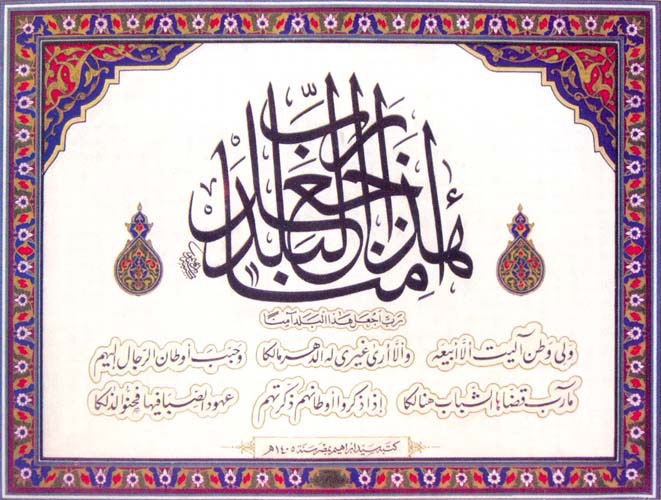 رب اجعل هذا البلد آمنا
رب اجعل هذا البلد آمنا
ولي وطن آليت ألا أبيعه وألا أرى غيري له الدهر مالكا وحبب أوطان الرجال إليهم
مآرب قضاها الشباب هنالكا إذا ذكروا أوطانهم ذكرتهم عهود الصبا فيها فحنوا لذلكا
كتبه سيد ابراهيم بمصر سنة ١٤٠٥هـ